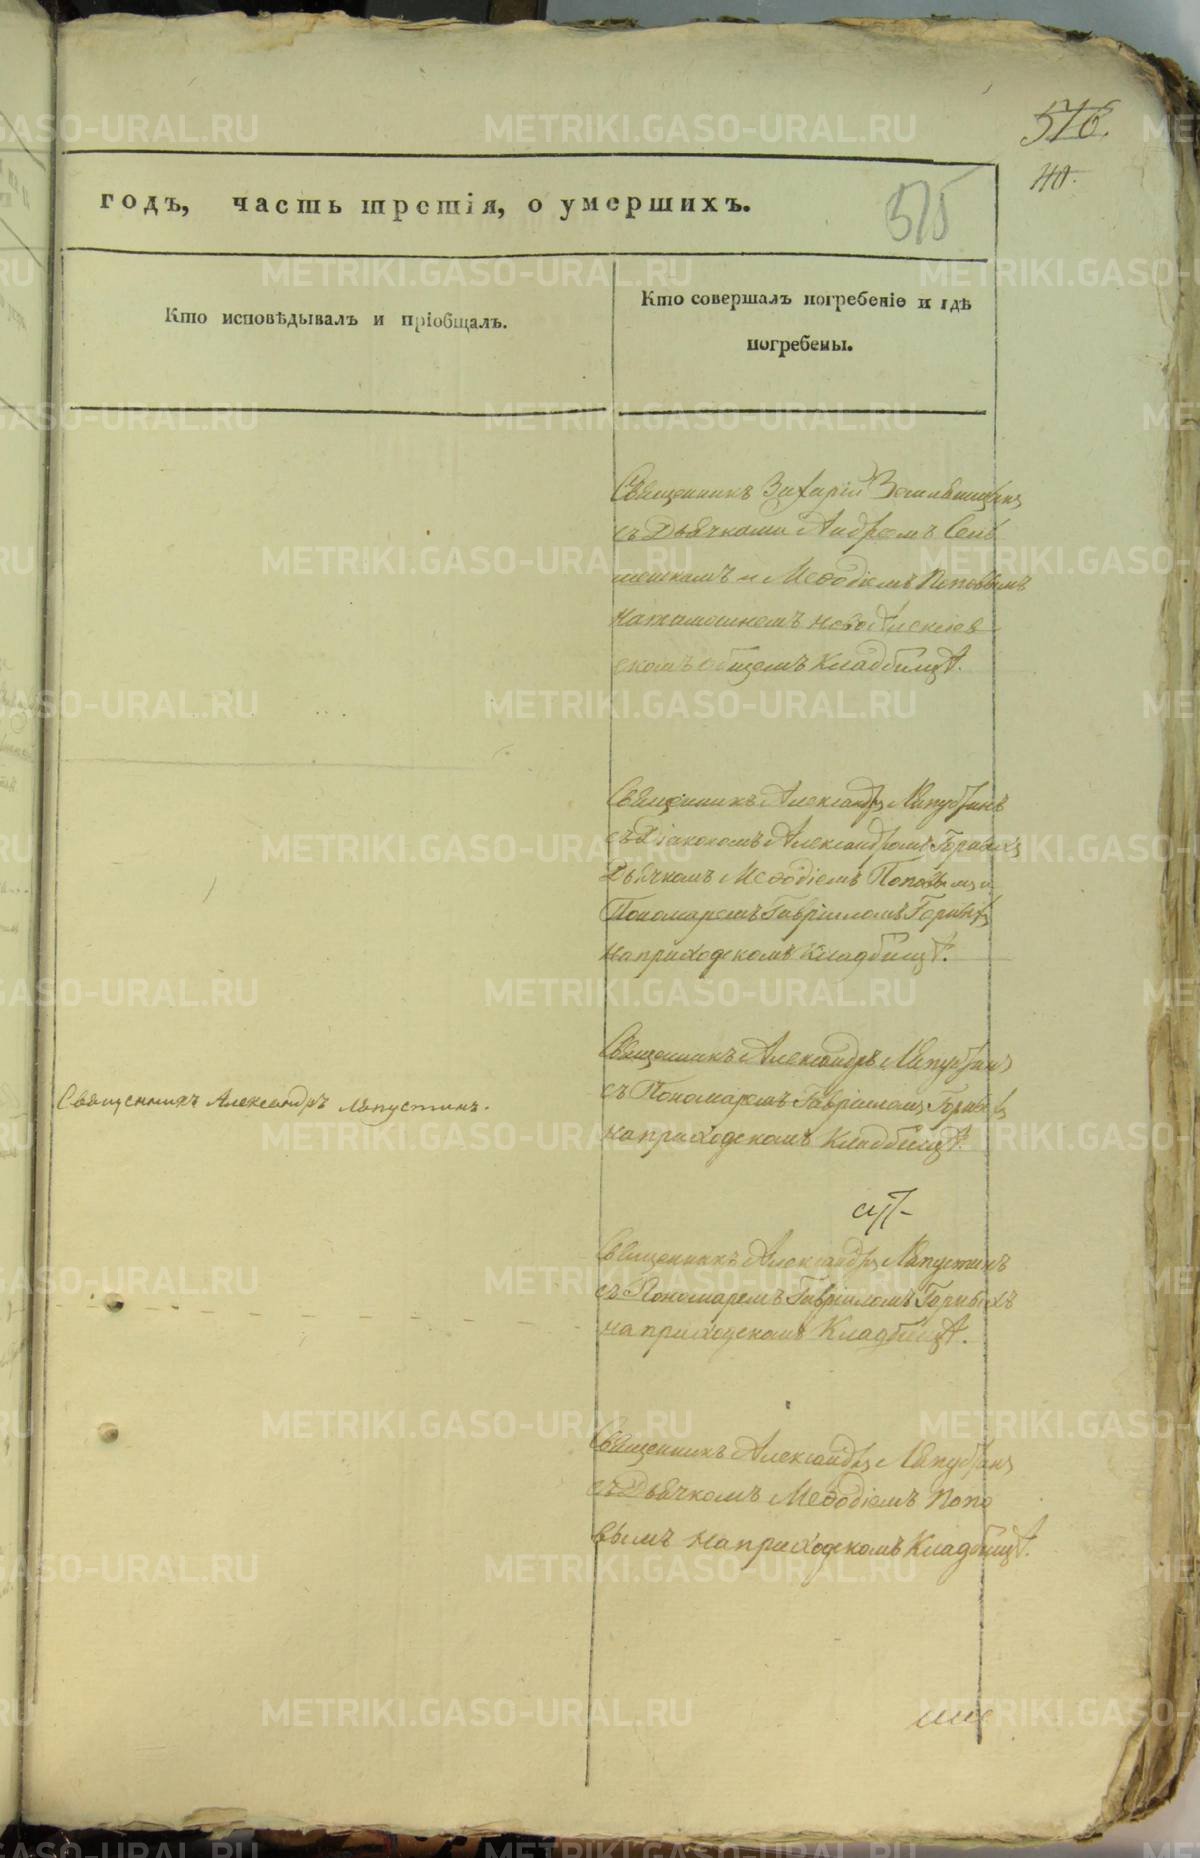 516.
40.
годъ, часть третія, о умершихъ.
515
Кто исповѣдывалъ и пріобщалъ.
Кто совершалъ погребеніе и гдѣ
погребены.
Священникъ Захарій
съ Дьячками Андреемъ
и Меѳодіемъ Поповымъ
на тамошнемъ новоАлексіев
скомъ общемъ Кладбищѣ.
Священникъ Александръ Ляпустинъ
съ Діакономъ Александромъ Горныхъ
Дьячкомъ Меѳодіемъ Поповымъ и
Пономаремъ Гавріиломъ Горныхъ
на приходскомъ Кладбищѣ.
Священникъ Александръ Ляпустинъ.
Священникъ Александръ Ляпустинъ
съ Пономаремъ Гавріиломъ Горныхъ
на приходскомъ Кладбищѣ.
Священникъ Александръ Ляпустинъ
съ Пономаремъ Гавріиломъ Горныхъ
на приходскомъ Кладбищѣ.
Священникъ Александръ Ляпустинъ
съ Дьячкомъ Меѳодіемъ Попо
вымъ на приходскомъ Кладбищѣ.
METRIKI.GASO-URAL.RU